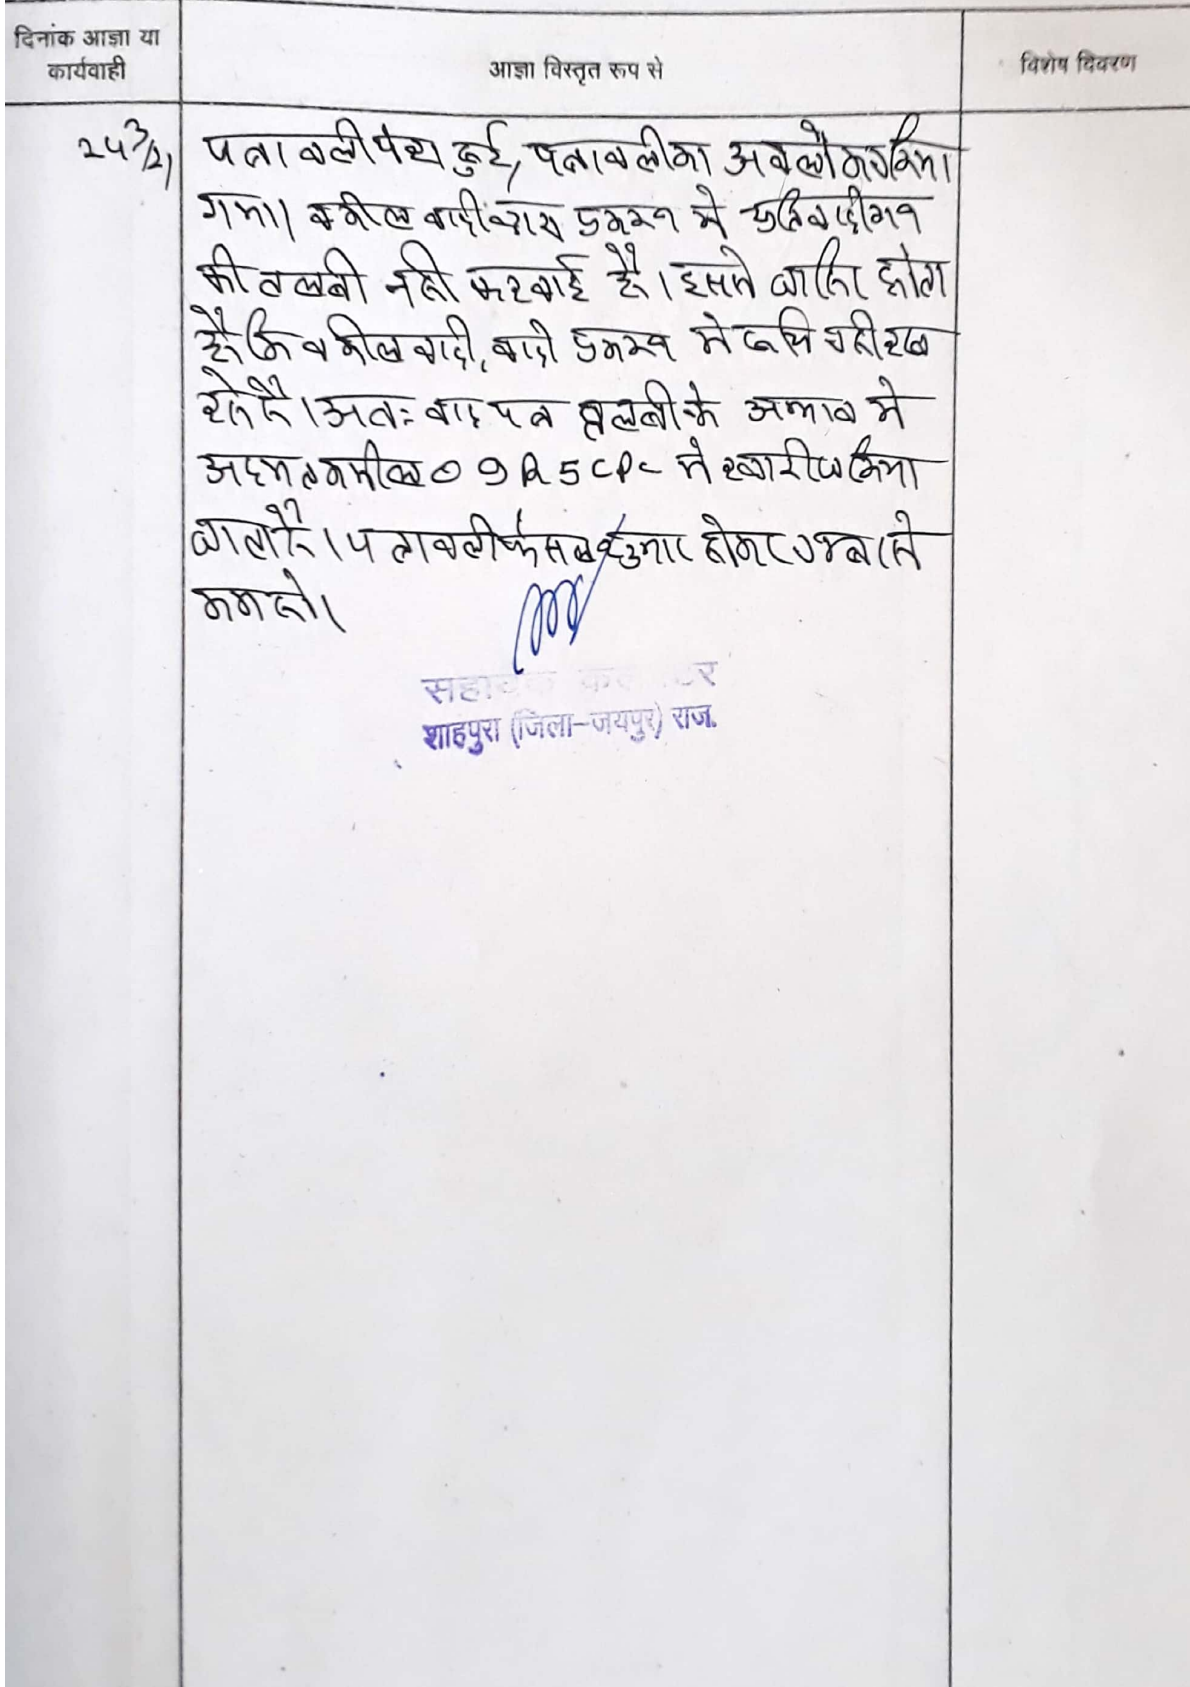 दिनांक आज्ञा या
कार्यवाही
आज्ञा विस्तृत रूप से
विशेष विवरण
पत्रावली पेश हुई, पत्रावली का अवलोकन किया
गया। वकील वादी द्वारा प्रकरण मे प्रतिवादीगण
की तलबी नही करवाई है। इससे जाहिर होता
है कि वकील वादी, वादी प्रकरण मे रूचि नही रख
रहे है। अतः वाद पत्र तलबी के अभाव मे
अदम तकमील O 9 R 5 CPC मे खारीज किया
जाता है। पत्रावली फैसल शुमार होकर नम्बर से
कम हो।
सहायक कलेक्टर
शाहपुरा (जिला-जयपुर) राज.